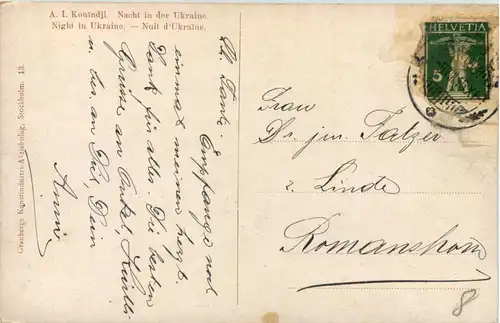 A. I. Kouindji. Nacht in der Ukraine.
Night in Ukraine. — Nuit d'Ukraine.
Granbergs Konstindustri-Aktiebolag, Stockholm. 13.
Lb. Tante.
Empfange noch
einmal meinen herzl.
Dank für alles. Die besten
Grüsse an Onkel,
u. bes. an Dich, Dein
Anni
HELVETIA
5
Frau
Dr. jur. Tatzer
z. Linde
Romanshorn
8